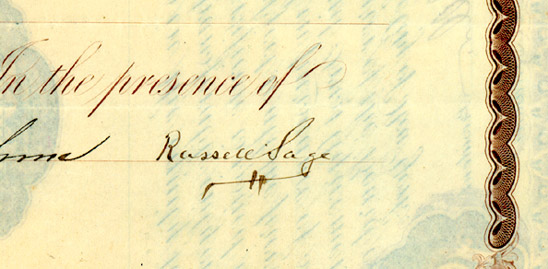 In the presence of
Russell Sage